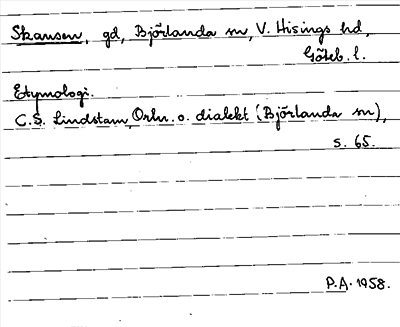 Skansen, gd, Björlanda sn, V. Hisings hd,
Göteb. l.
Etymologi.
C.S. Lindstam, Ortn. o. dialekt (Björlanda sn),
s. 65.
P.A. 1958.